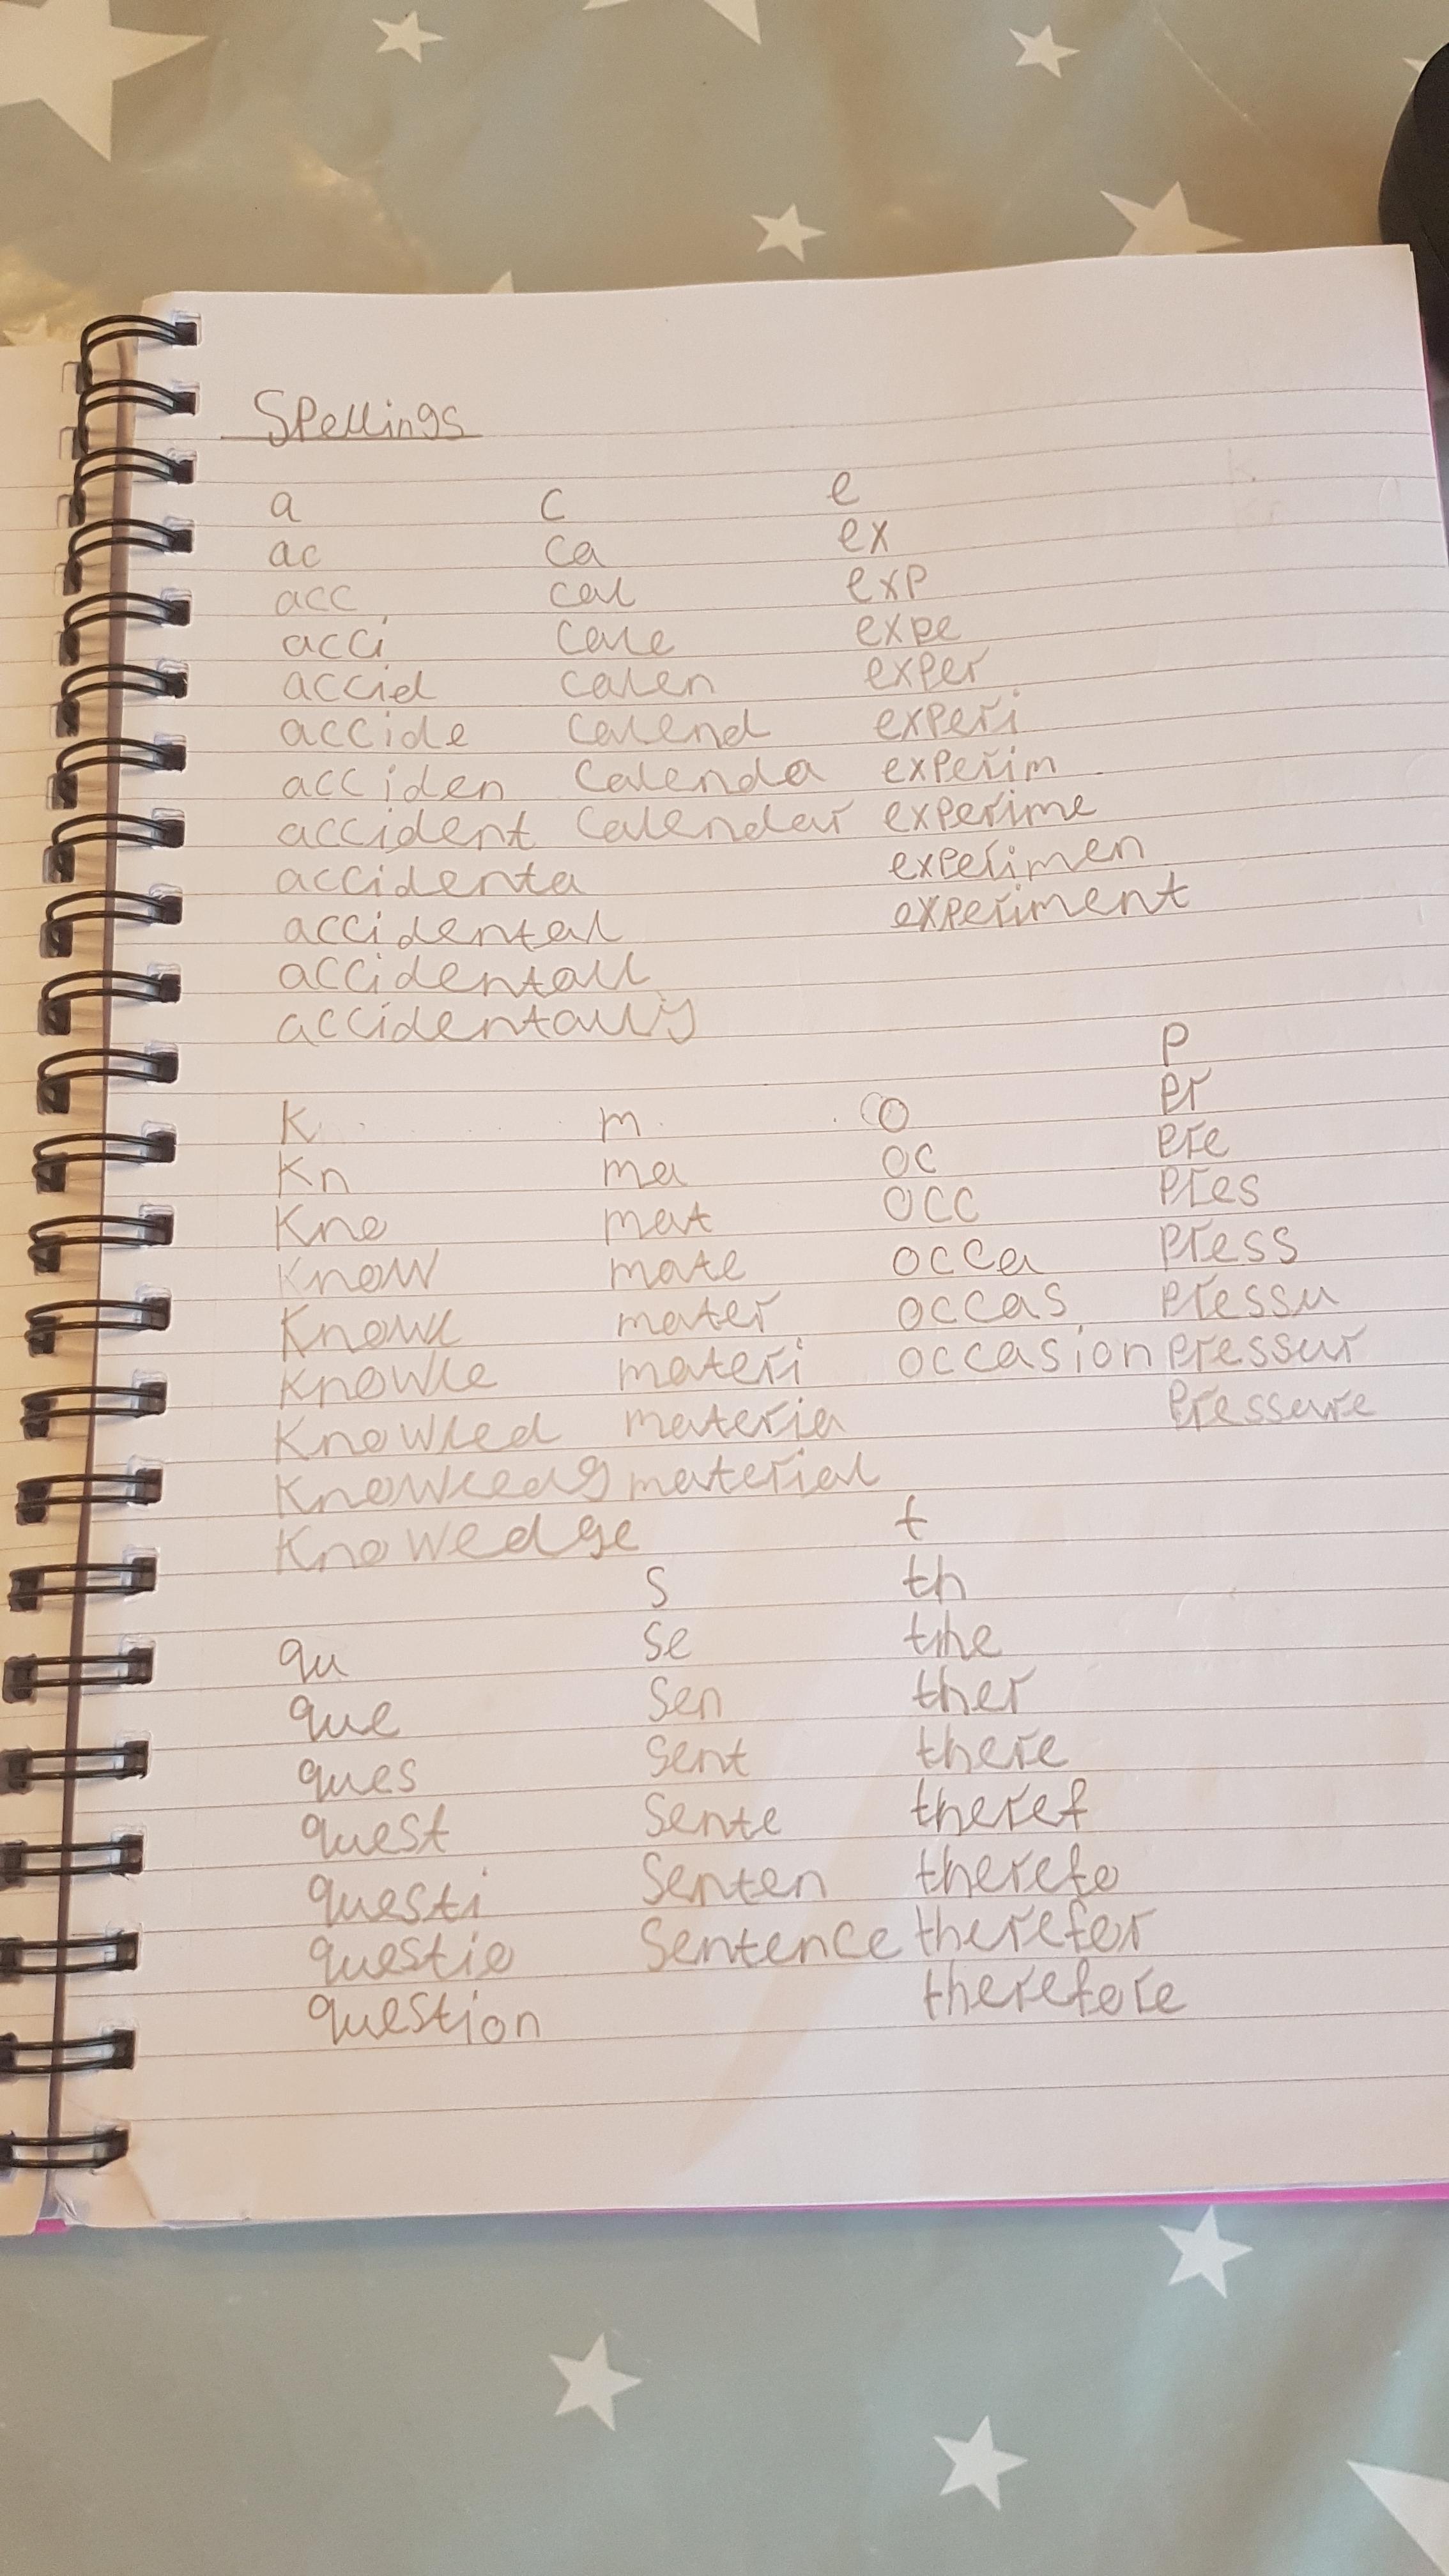 Spellings
a c e
ac ca ex
acc cal exp
acci cale expe
accid calen exper
accide calend experi
acciden calenda experim
accident calendar experime
accidenta experimen
accidental experiment
accidentall
accidentally
p
K m o pr
Kn ma oc pre
Kno mat occ pres
Know mate occa press
Knowl mater occas pressu
Knowle materi occasion pressur
Knowled materia pressure
Knowledg material
Knowedge t
s th
qu se the
que sen ther
ques sent there
quest sente theref
questi senten therefo
questio sentence therefor
question therefore